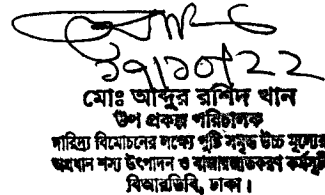 ১৭/১০/২২
মোঃ আব্দুর রশিদ খান
উপ প্রকল্প পরিচালক
দারিদ্র্য বিমোচনের লক্ষ্যে পুষ্টি সমৃদ্ধ উচ্চ মূল্যের
অপ্রধান শস্য উৎপাদন ও বাজারজাতকরণ কর্মসূচী
বিআরডিবি, ঢাকা।